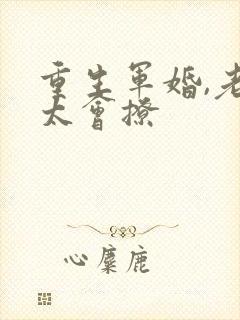 重生军婚,老
太会撩
心麋鹿